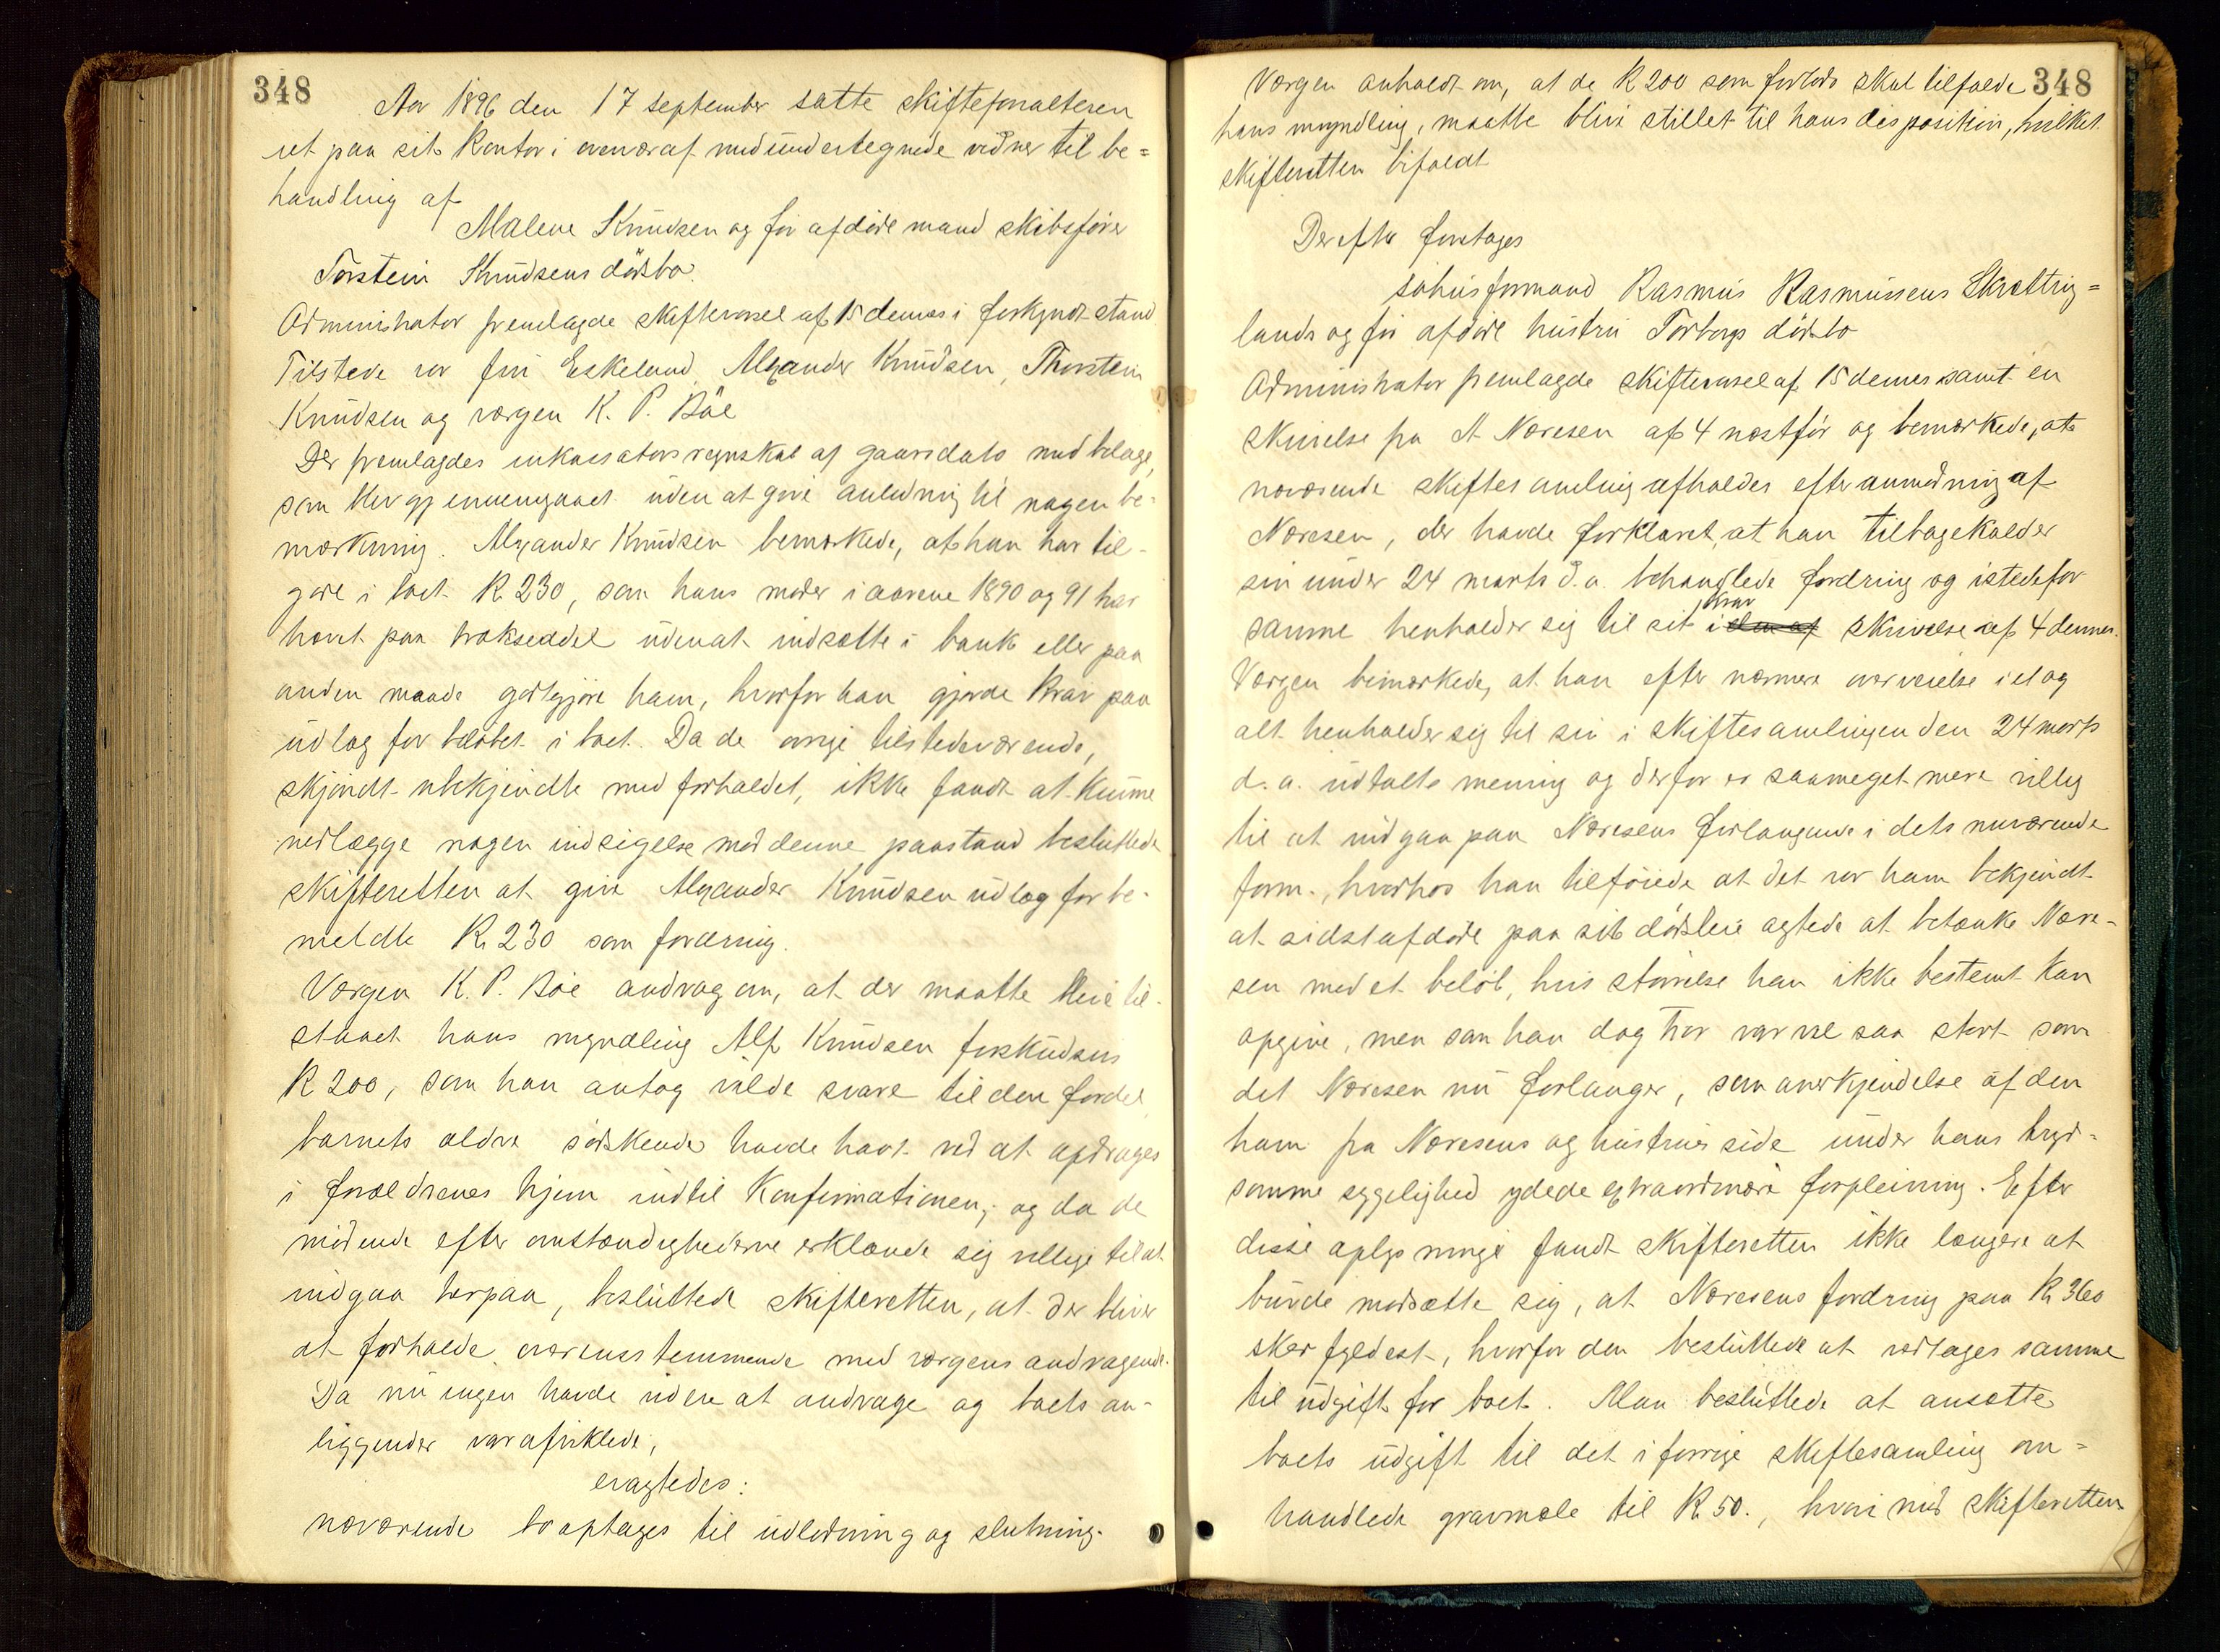 348
Aar 1896 den 17 september satte skifteforvalteren
ret paa sit kontor i overvær af medundertegnede vidner til be=
handling af
Malene Knudsen og før afdøde mand skibsfører
Torstein Knudsens dødsbo.
Administrator fremlagde skiftevarsel af 15 dennes i forkyndt stand
Tilstede var fru Eskeland, Alexander Knudsen, Thorstein
Knudsen og værgen K. P. Bøe
Der fremlagdes inkassators regnskab af gaarsdato med bilage,
som blev gjennemgaaet uden at give anledning til nogen be-
mærkning. Alexander Knudsen bemærkede, at han har til-
gode i boet Kr 230, som hans moder i aarene 1890 og 91 har
hævet paa trækseddel uden at indsætte i bank eller paa
anden maade godtgjøre ham, hvorfor han gjorde krav paa
udlæg for beløbet i boet. Da de øvrige tilstedeværende,
skjøndt ubekjendte med forholdet, ikke fandt at kunne
nedlægge nogen indsigelse mod denne paastand besluttede
skifteretten at give Alexander Knudsen udlæg for be-
meldte Kr 230 som fordring.
Værgen K. P. Bøe androg om, at der maatte blive til-
staaet hans myndling Alf Knudsen forskudsvis
Kr 200, som han antog vilde svare til den fordel
barnets ældre sødskende havde havt ved at opdrages
i forældrenes hjem indtil konfirmationen; og da de
mødende efter omstændighederne erklærede sig villige til at
indgaa herpaa, besluttede skifteretten, at der bliver
at forholde overensstemmende med værgens andragende.
Da nu ingen havde videre at andrage og boets an-
liggender var afviklede,
eragtedes:
nærværende bo optages til udlodning og slutning.
348
Værgen anholdt om, at de Kr 200 som forlods skal tilfalde
hans myndling, maatte blive stillet til hans disposition, hvilket
skifteretten bifaldt
Derefter foretages
søhusformand Rasmus Rasmussens Skrætting=
lands og før afdøde hustru Torborgs dødsbo
Administrator fremlagde skiftevarsel af 15 dennes samt en
skrivelse fra A Næresen af 4 næstfør og bemærkede, at
nærværende skiftesamling afholdes efter anmodning af
Næresen, der havde forklaret, at han tilbagekalder
sin under 24 marts d. a. behandlede fordring og istedetfor
samme henholder sig til sit krav i skrivelse af 4 dennes.
Værgen bemærkede, at han efter nærmere overveielse i et og
alt henholder sig til sin i skiftesamlingen den 24 marts
d. a. udtalte mening og derfor er saameget mere villig
til at indgaa paa Næresens forlangende i dets nuværende
form, hvorhos han tilføiede at det var ham bekjendt
at sidstafdøde paa sit dødsleie agtede at betænke Nære-
sen med et beløb, hvis størrelse han ikke bestemt kan
opgive, men som han dog tror var vel saa stort som
det Næresen nu forlanger, som anerkjendelse af den
ham fra Næresens og hustrues side under hans bryd=
somme sygelighed ydede extraordinære forpleining. Efter
disse oplysninge fandt skifteretten ikke længere at
burde modsætte sig, at Næresens fordring paa Kr 360
sker fyldest, hvorfor den besluttede at vedtages samme
til udgift for boet. Man besluttede at ansætte
boets udgift til det i forrige skiftesamling om=
handlede gravmæle til Kr 50., hvori med skifteretten